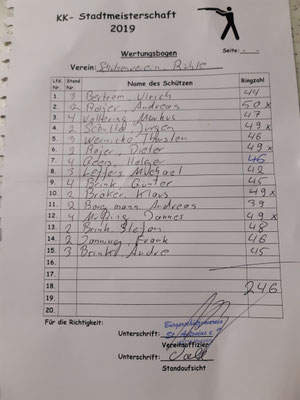 KK- Stadtmeisterschaft
2019
Wertungsbogen
Seite: - -
Verein: Schützenverein Rühle
Lfd. Nr. Stand Nr. Name des Schützen Ringzahl
1. 3 Bertram, Ulrich 44
2. 2 Rojer, Andreas 50 x
3. 4 Vollering, Markus 47
4. 2 Schulte, Jürgen 49 x
5. 3 Wernicke, Thorsten 46
6. Rojer, Dieter 49 x
7. 4 Geers, Holger 46
8. 3 Leffers, Michael 42
9. 4 Brink, Günter 45
10. Bröker, Klaus 49 x
11. 2 Borgmann, Andreas 39
12. 4 Hannes 49 x
13. 2 Brink, Stefan 48
14. 2 Frank 46
15. 3 Brink, Andre 45
16.
17.
18. 246
19.
20.
Für die Richtigkeit:
Unterschrift:
Vereinsoffizier
Unterschrift:
Standaufsicht